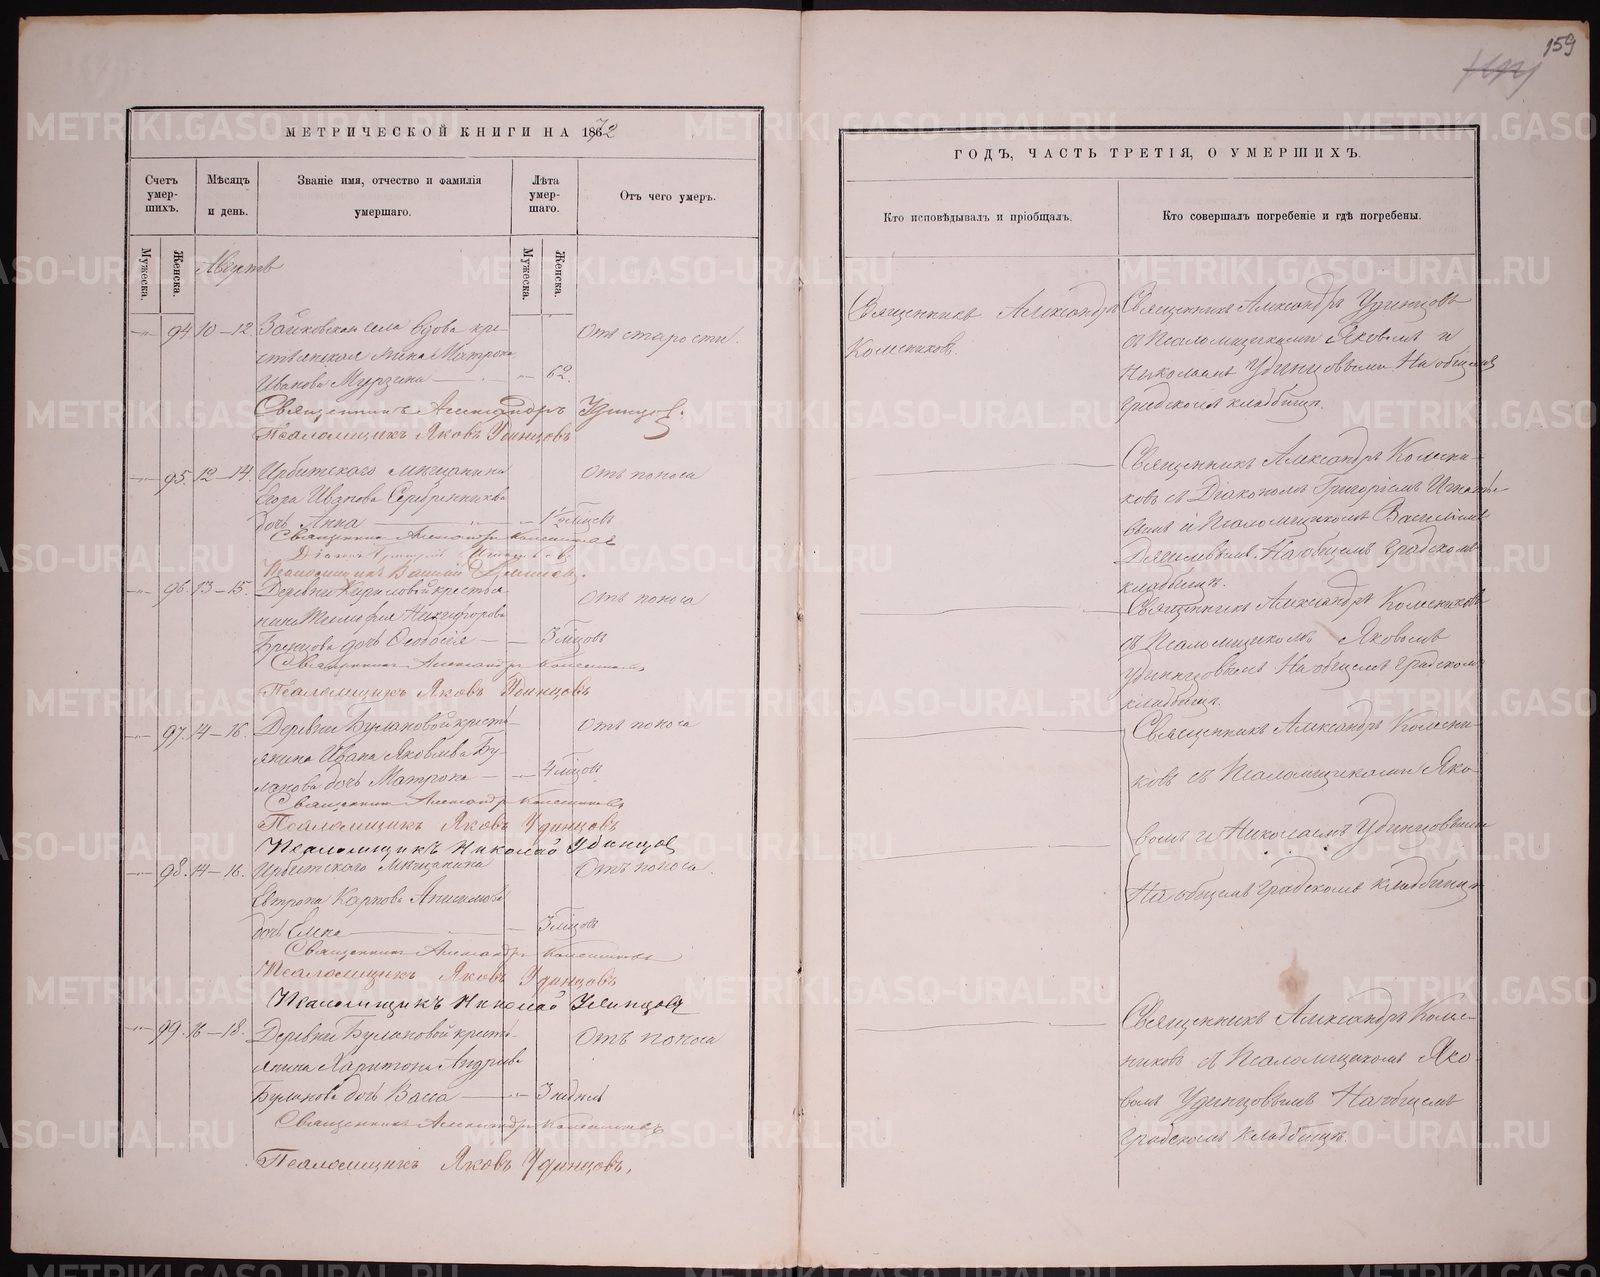 159
МЕТРИЧЕСКОЙ КНИГИ НА 1872
Счетъ умер-шихъ.
Мѣсяцъ и день.
Званіе имя, отчество и фамилія умершаго.
Лѣта умер-шаго.
Отъ чего умеръ.
Мужеска.
Женска.
Мужеска.
Женска.
Августъ
94 10–12 Зайковскаго села вдова кре-
стьянская жена Матрона
Иванова Мурзина 62.
Отъ старости.
Священникъ Александръ Удинцов.
Псаломщикъ Яковъ Удинцовъ
95. 12–14 Ирбитскаго мѣщанина
Егора Иванова Серебренникова
дочь Анна 1½ мѣсяцъ
Отъ поноса
Священникъ Александръ Колесниковъ
Діаконъ Григорій
Псаломщикъ Василій
96. 13–15. Деревни Кириловой крестья-
нина Никифорова
дочь Ѳеодосія 3 мѣсяцовъ
Отъ поноса
Священникъ Александръ Колесниковъ
Псаломщикъ Яковъ Удинцовъ
97. 14–16. Деревни Булановой кресть-
янина Ивана Яковлева Бу-
ланова дочь Матрона 4 мѣсяцовъ
Отъ поноса
Священникъ Александръ Колесниковъ
Псаломщикъ Яковъ Удинцовъ
Псаломщикъ Николай Удинцов
98. 14–16. Ирбитскаго мѣщанина
Евтропа Карпова
дочь Елена 3 мѣсяцовъ
Отъ поноса.
Священникъ Александръ Колесниковъ
Псаломщикъ Яковъ Удинцовъ
Псаломщикъ Николай Удинцов
99. 16–18. Деревни Булановой кресть-
янина Харитона Андреева
Буланова дочь Васса 3 недѣль
Отъ поноса
Священникъ Александръ Колесниковъ
Псаломщикъ Яковъ Удинцовъ.
ГОДЪ, ЧАСТЬ ТРЕТІЯ, О УМЕРШИХЪ.
Кто исповѣдывалъ и пріобщалъ.
Кто совершалъ погребеніе и гдѣ погребены.
Священникъ Александръ
Колесниковъ.
Священникъ Александръ Удинцовъ
съ Псаломщиками Яковомъ и
Николаемъ Удинцовыми. На общемъ
градскомъ кладбищѣ.
Священникъ Александръ Колесни-
ковъ съ Діакономъ Григоріемъ
и Псаломщикомъ Василіемъ
На общемъ градскомъ
кладбищѣ.
Священникъ Александръ Колесниковъ
съ Псаломщикомъ Яковомъ
Удинцовымъ На общемъ градскомъ
кладбищѣ.
Священникъ Александръ Колесни-
ковъ съ Псаломщиками Яко-
вомъ и Николаемъ Удинцовыми
На общемъ градскомъ кладбищѣ
Священникъ Александръ Колес-
никовъ съ Псаломщикомъ Яко-
вомъ Удинцовымъ На общемъ
градскомъ кладбищѣ.
METRIKI.GASO-URAL.RU